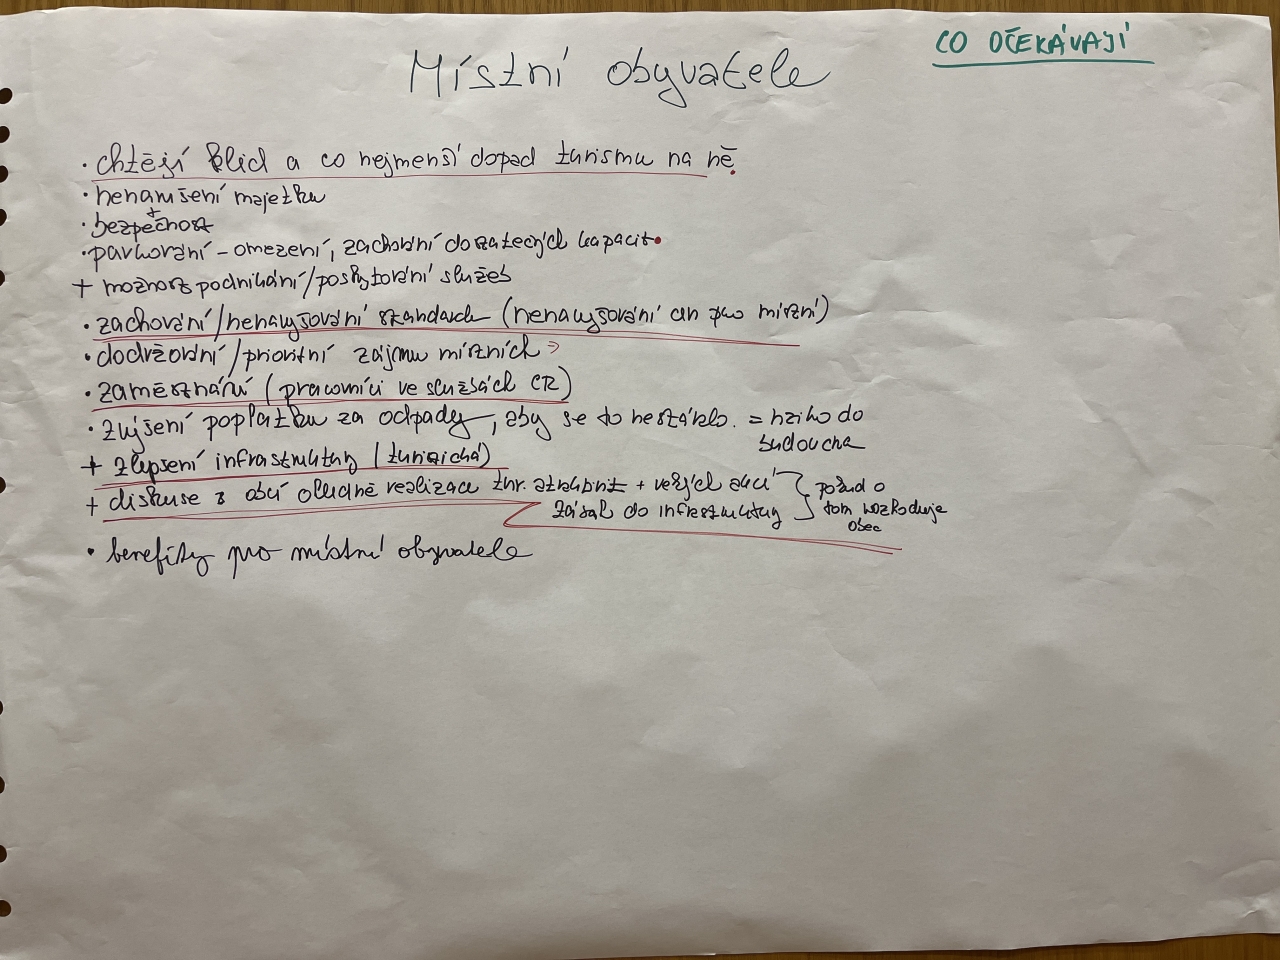 CO OČEKÁVAJÍ
Místní obyvatele
• chtějí klid a co nejmenší dopad turismu na ně.
• nenarušení majetku
• bezpečnost
+
• parkování - omezení, zachování dosatečných kapacit
+ možnost podnikání/poskytování služeb
• zachování/nenavyšování standardu (nenavyšování cen pro místní)
• dodržování/prioritní zájmu místních
• zaměstnání (pracovníci ve službách CR)
• zvýšení poplatku za odpady, aby se to nestáhlo. =
do
budoucna
+ zlepšení infrastruktury (turistická)
+ diskuse s obcí ohledně realizace tur. atrakcí + velkých akcí
zásah do infrastruktury
pokud o
tom rozhoduje
obec
• benefity pro místní obyvatele